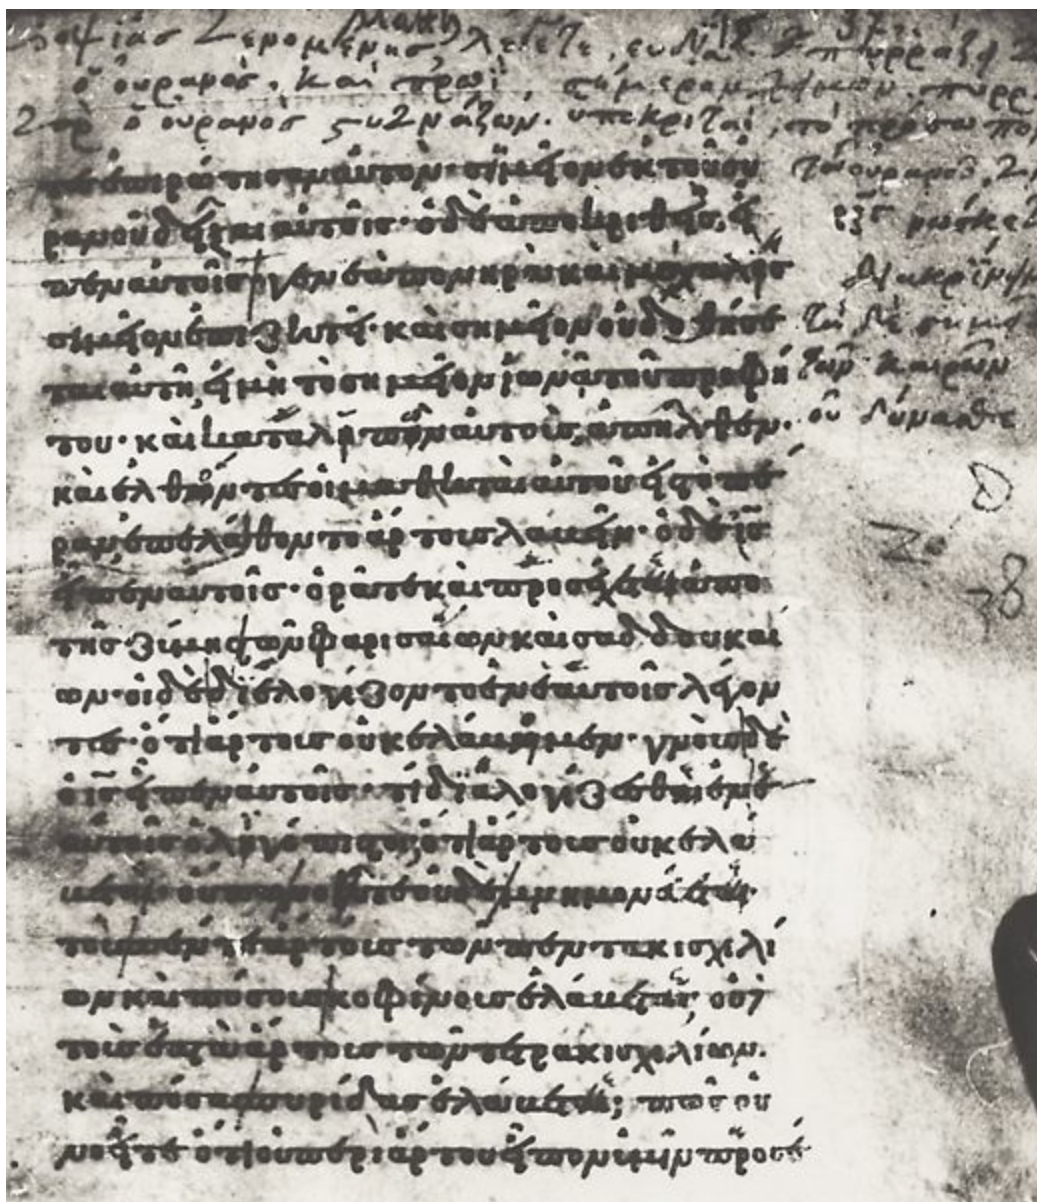 ὀψίας γενομένης λέγετε, εὐδία πυρράζει γ
ὁ οὐρανὸς. καὶ πρωῒ, σήμερον χειμών. πυρρά
ὁ οὐρανὸς στυγνάζων. ὑποκριταὶ, τὸ πρόσωπον
τοῦ οὐρανοῦ
διακρίνειν
τὰ δὲ σημεῖ
τῶν καιρῶν
οὐ δύνασθε
τες ἐπηρώτησαν αὐτὸν· σημεῖον ἐκ τοῦ οὐ
ρανοῦ δεῖξαι αὐτοῖς· ὁ δὲ ἀποκριθεὶς, εἶ
πεν αὐτοῖς· γενεὰ πονηρὰ καὶ μοιχαλὶς
σημεῖον ἐπιζητεῖ· καὶ σημεῖον οὐ δοθήσε
ται αὐτῇ, εἰ μὴ τὸ σημεῖον ἰωνᾶ τοῦ προφή
του· καὶ καταλιπὼν αὐτοὺς, ἀπῆλθεν·
καὶ ἐλθόντες οἱ μαθηταὶ αὐτοῦ εἰς τὸ πέ
ραν ἐπελάθοντο ἄρτους λαβεῖν· ὁ δὲ ις
εἶπεν αὐτοῖς· ὁρᾶτε καὶ προσέχετε ἀπὸ
τῆς ζύμης τῶν φαρισαίων καὶ σαδδουκαί
ων· οἱ δὲ διελογίζοντο ἐν ἑαυτοῖς λέγον
τες· ὅτι ἄρτους οὐκ ἐλάβομεν· γνοὺς δὲ
ὁ ις εἶπεν αὐτοῖς· τί διαλογίζεσθε ἐν ἑ
αυτοῖς ὀλιγόπιστοι, ὅτι ἄρτους οὐκ ἐλά
βετε· οὔπω νοεῖτε οὐδὲ μνημονεύετε·
τοὺς πέντε ἄρτους τῶν πεντακισχιλί
ων καὶ πόσους κοφίνους ἐλάβετε; οὐδὲ
τοὺς ἑπτὰ ἄρτους τῶν τετρακισχιλίων.
καὶ πόσας σπυρίδας ἐλάβετε; πῶς οὐ
νοεῖτε ὅτι οὐ περὶ ἄρτου εἶπον ὑμῖν προσέ